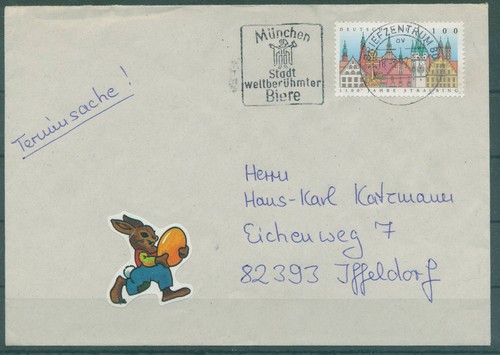 München
Stadt
weltberühmter
Biere
DEUTSCHLAND 100
BRIEFZENTRUM
ov
1100 JAHRE STRAUBING
Terminsache!
Herrn
Hans-Karl Katzmann
Eichenweg 7
82393 Iffeldorf